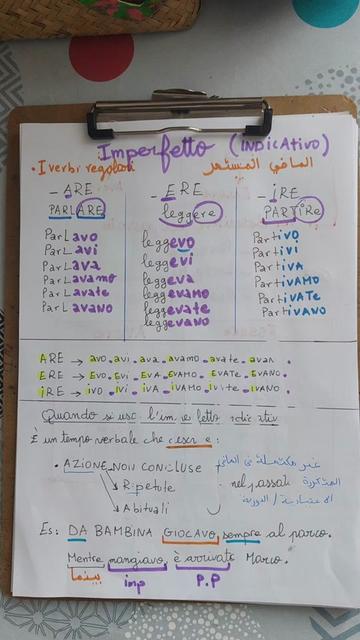 Imperfetto (INDICAtivo)
• I verbi regolari الماضي المستمر
- ARE - ERE - iRE
PARLARE leggere PARTIRe
ParLavo leggevo Partivo
ParLavi leggevi Partivi
ParLava leggeva PartivA
ParLavamo leggevamo PartivAMO
ParLavate leggevate PartivATe
ParLavano leggevano PartivANO
ARE → avo - avi - ava - avamo - avate - avan.
ERE → Evo - Evi - EVA - EVAMO - EVATE - EVANO.
iRE → ivo - ivi - ivA - iVAMO - ivite - ivANO.
Quando si usa l'im e fetto indicativ
È un tempo verbale che escri e:
• AZIONE NON CONCLUSE غير مكتملة في الماضي
→ Ripetute nel passati المتكررة
→ Abituali الاعتيادية /
Es: DA BAMBINA GIOCAVO sempre al parco.
Mentre mangiavo, è arrivato Marco.
بينما imp P.P